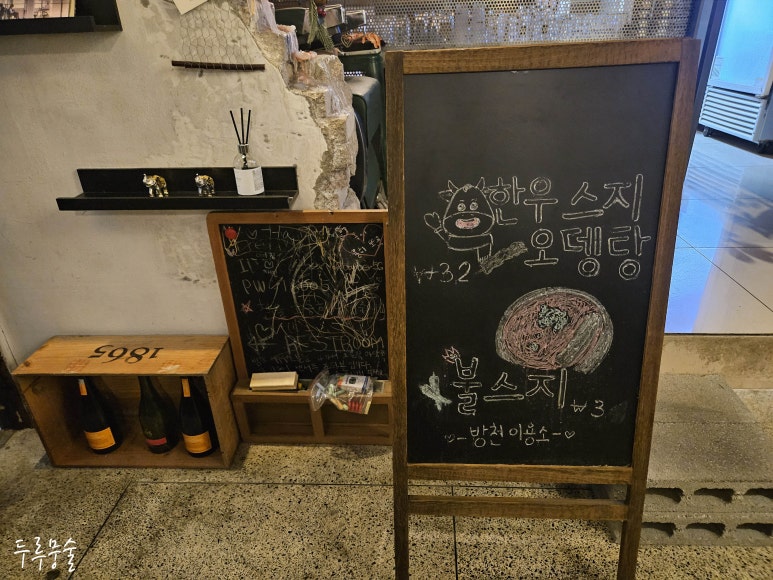 한우 스지
오뎅탕
₩3.2
불스지 ₩3
-방천이용소-
RESTROOM
1865
두루뭉술